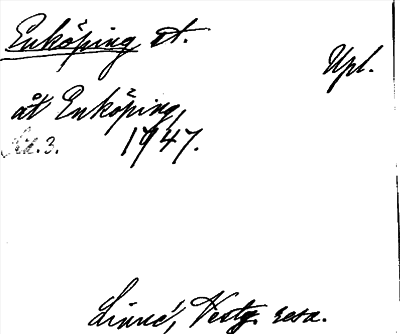 Enköping st.
Upl.
åt Enköping,
Sid. 3. 1947.
Linné, Vestg. resa.